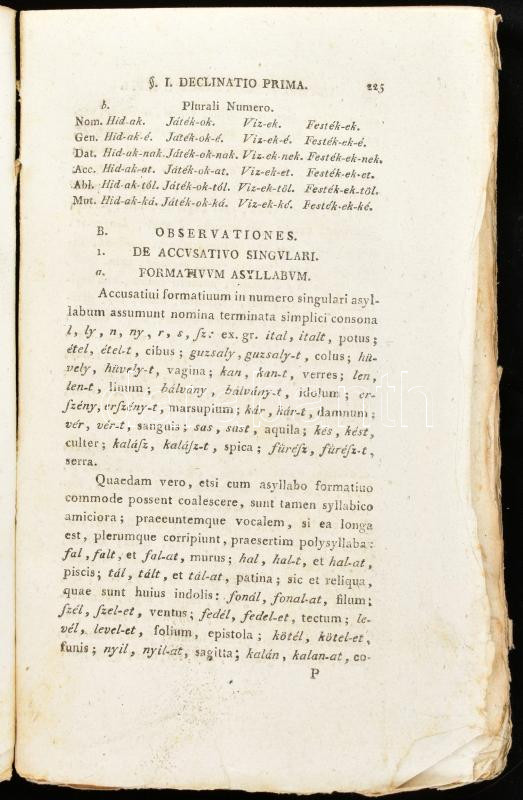 §. I. DECLINATIO PRIMA. 225
b. Plurali Numero.
Nom. Hid-ak. Játék-ok. Viz-ek. Festék-ek.
Gen. Hid-ak-é. Játék-ok-é. Viz-ek-é. Festék-ek-é.
Dat. Hid-ak-nak. Játék-ok-nak. Viz-ek-nek. Festék-ek-nek.
Acc. Hid-ak-at. Játék-ok-at. Viz-ek-et. Festék-ek-et.
Abl. Hid-ak-tól. Játék-ok-tól. Viz-ek-töl. Festék-ek-töl.
Mut. Hid-ak-ká. Játék-ok-ká. Viz-ek-ké. Festék-ek-ké.
B. OBSERVATIONES.
1. DE ACCVSATIVO SINGVLARI.
a. FORMATIVVM ASYLLABVM.
Accusatiui formatiuum in numero singulari asyl-
labum assumunt nomina terminata simplici consona
l, ly, n, ny, r, s, ſz: ex. gr. ital, italt, potus;
étel, étel-t, cibus; guzsaly, guzsaly-t, colus; hü-
vely, hüvely-t, vagina; kan, kan-t, verres; len,
len-t, linum; bálvány, bálvány-t, idolum; er-
ſzény, erſzény-t, marsupium; kár, kár-t, damnum;
vér, vér-t, sanguis; sas, sast, aquila; kés, kést,
culter; kaláſz, kaláſz-t, spica; füréſz, füréſz-t,
serra.
Quaedam vero, etsi cum asyllabo formatiuo
commode possent coalescere, sunt tamen syllabico
amiciora; praeeuntemque vocalem, si ea longa
est, plerumque corripiunt, praesertim polysyllaba:
fal, falt, et fal-at, murus; hal, hal-t, et hal-at,
piscis; tál, tált, et tál-at, patina; sic et reliqua,
quae sunt huius indolis: fonál, fonal-at, filum;
ſzél, ſzel-et, ventus; fedél, fedel-et, tectum; le-
vél, level-et, folium, epistola; kötél, kötel-et,
funis; nyil, nyil-at, sagitta; kalán, kalan-at, co-
P